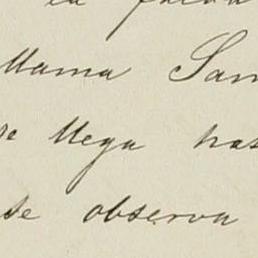 llama San
se llega has
se observa